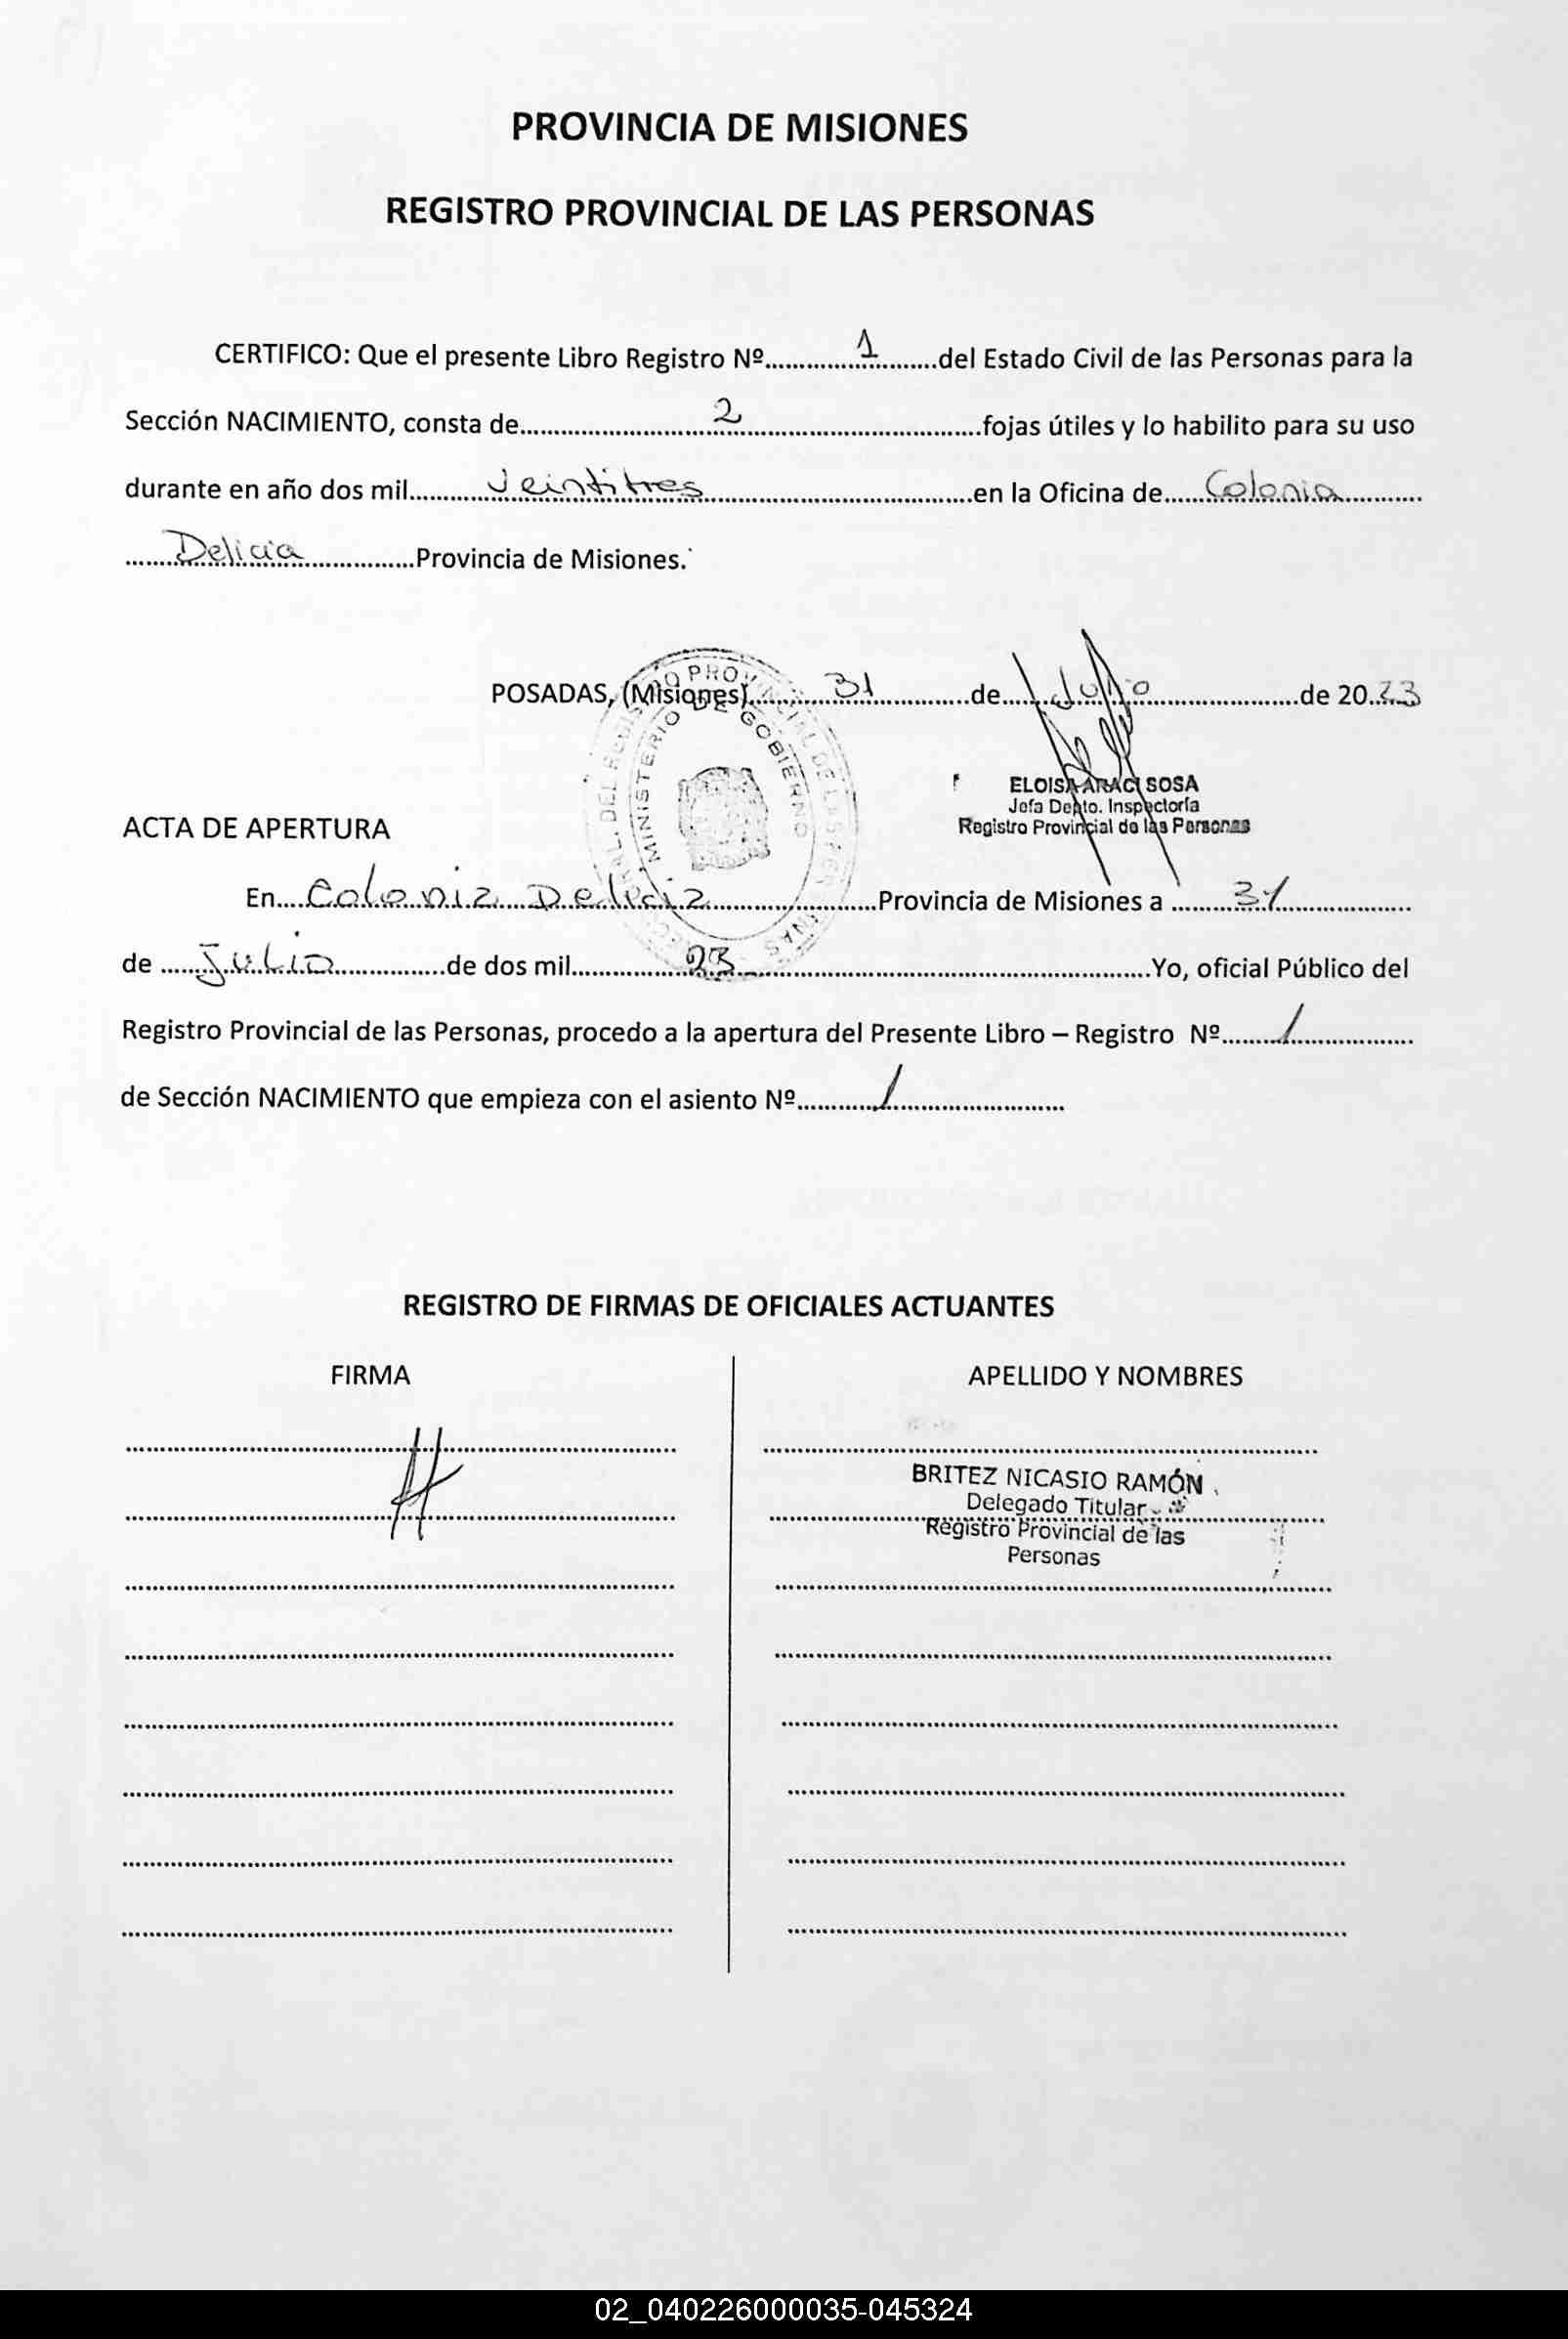 PROVINCIA DE MISIONES
REGISTRO PROVINCIAL DE LAS PERSONAS
CERTIFICO: Que el presente Libro Registro Nº 1 del Estado Civil de las Personas para la
Sección NACIMIENTO, consta de 2 fojas útiles y lo habilito para su uso
durante en año dos mil Veintitres en la Oficina de Colonia
Delicia Provincia de Misiones.
POSADAS, (Misiones) 31 de Julio de 20 23
MINISTERIO DE GOBIERNO
ELOISA ARACI SOSA
Jefa Depto. Inspectoría
Registro Provincial de las Personas
ACTA DE APERTURA
En Colonia Delicia Provincia de Misiones a 31
de Julio de dos mil 23 Yo, oficial Público del
Registro Provincial de las Personas, procedo a la apertura del Presente Libro – Registro Nº 1
de Sección NACIMIENTO que empieza con el asiento Nº 1
REGISTRO DE FIRMAS DE OFICIALES ACTUANTES
FIRMA APELLIDO Y NOMBRES
BRITEZ NICASIO RAMÓN
Delegado Titular
Registro Provincial de las
Personas
02_040226000035-045324